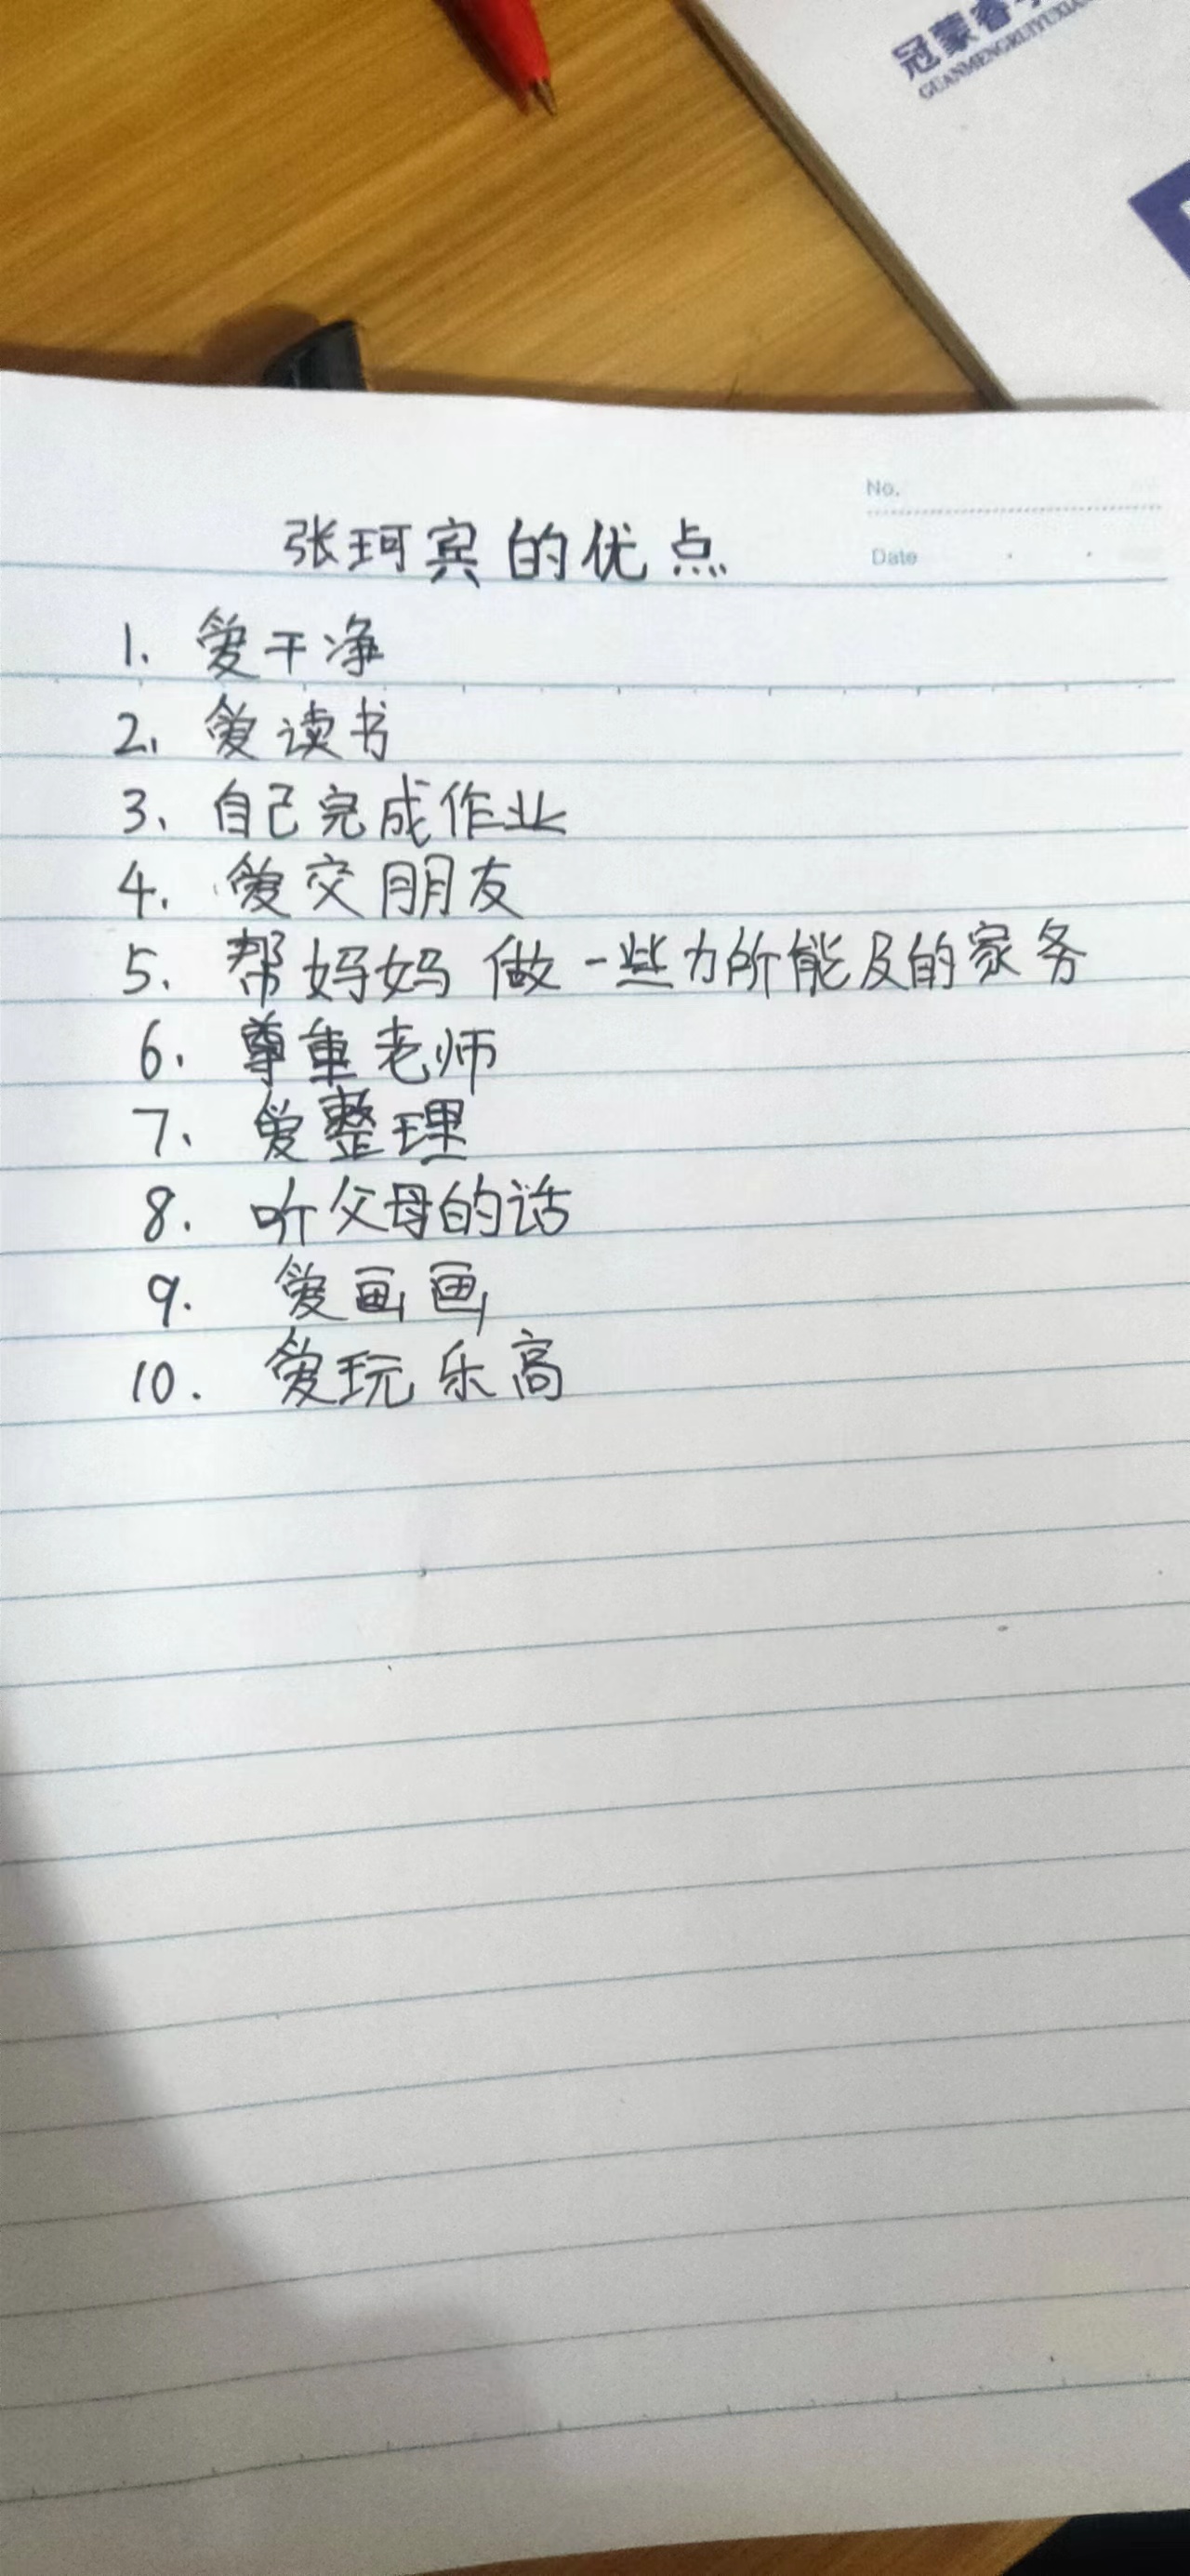 冠蒙睿
GUANMENGRUIYUXIA
No.
Date
张珂宾的优点
1. 爱干净
2. 爱读书
3、自己完成作业
4. 爱交朋友
5. 帮妈妈做一些力所能及的家务
6. 尊重老师
7、爱整理
8. 听父母的话
9. 爱画画
10. 爱玩乐高